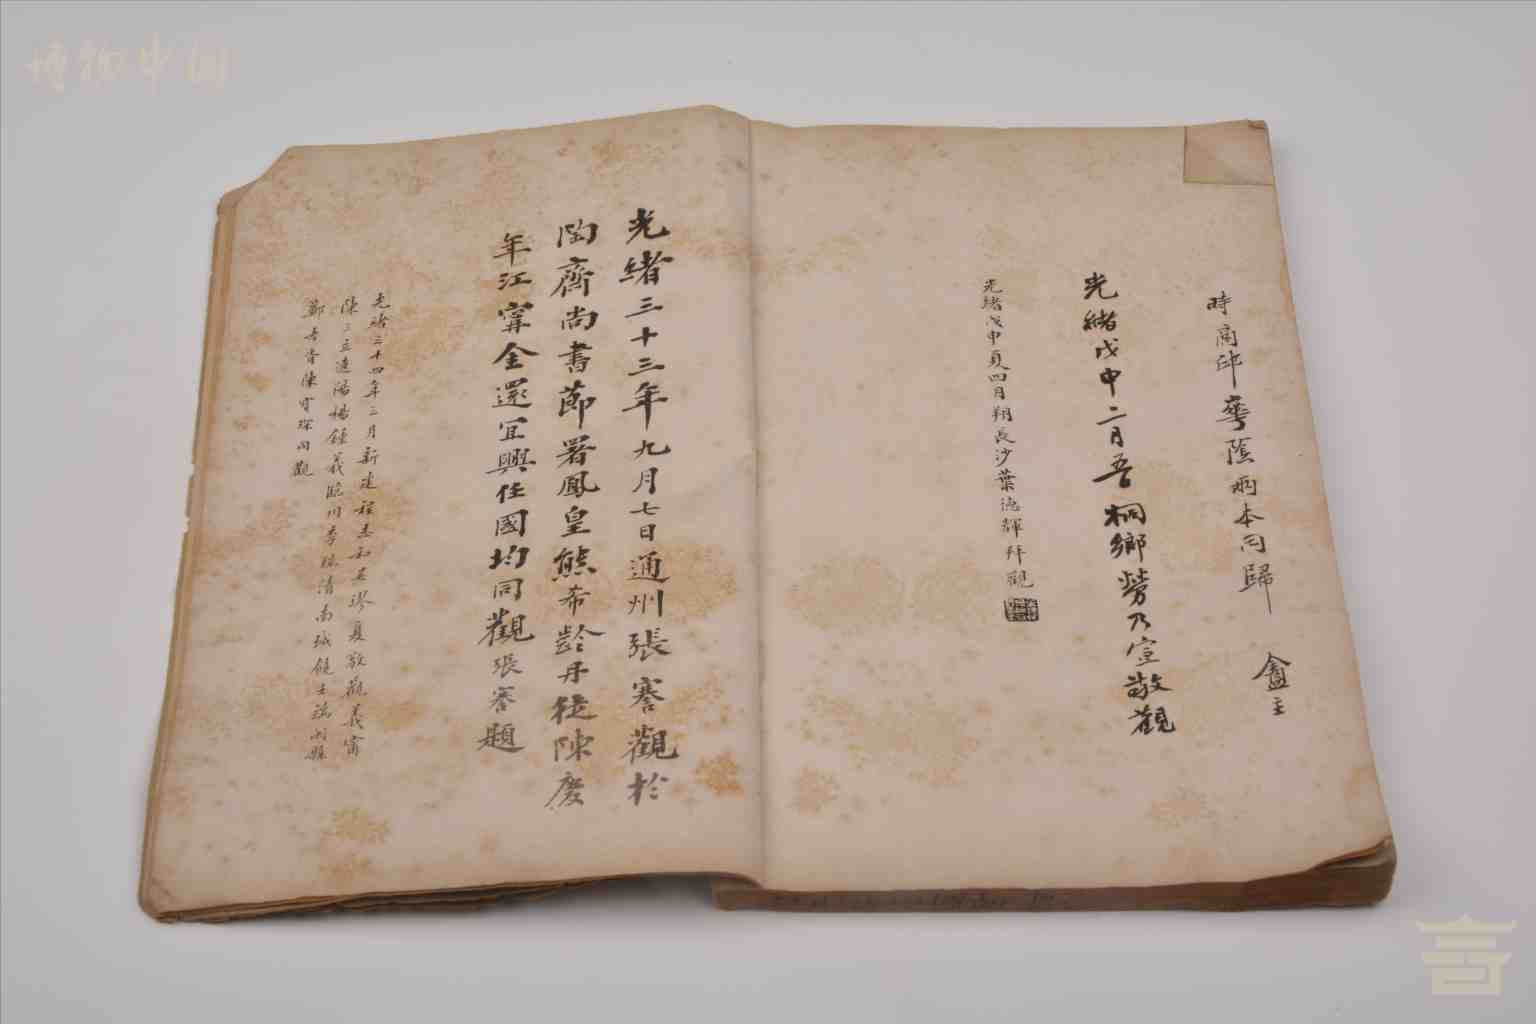 時商邱華陰兩本同歸
光緒戊申二月吾桐鄉勞乃宣敬觀
光緒戊申夏四月朔長沙葉德輝拜觀
光緒三十三年九月七日通州張謇觀於
陶齋尚書節署鳳皇熊希齡丹徒陳慶
年江寧金還宜興任國均同觀張謇題
光緒三十四年三月新建程志和吳縣夏敬觀義寧
陳三立遼陽楊鍾羲臨川李瑞清南城饒士端
同觀
博物中国